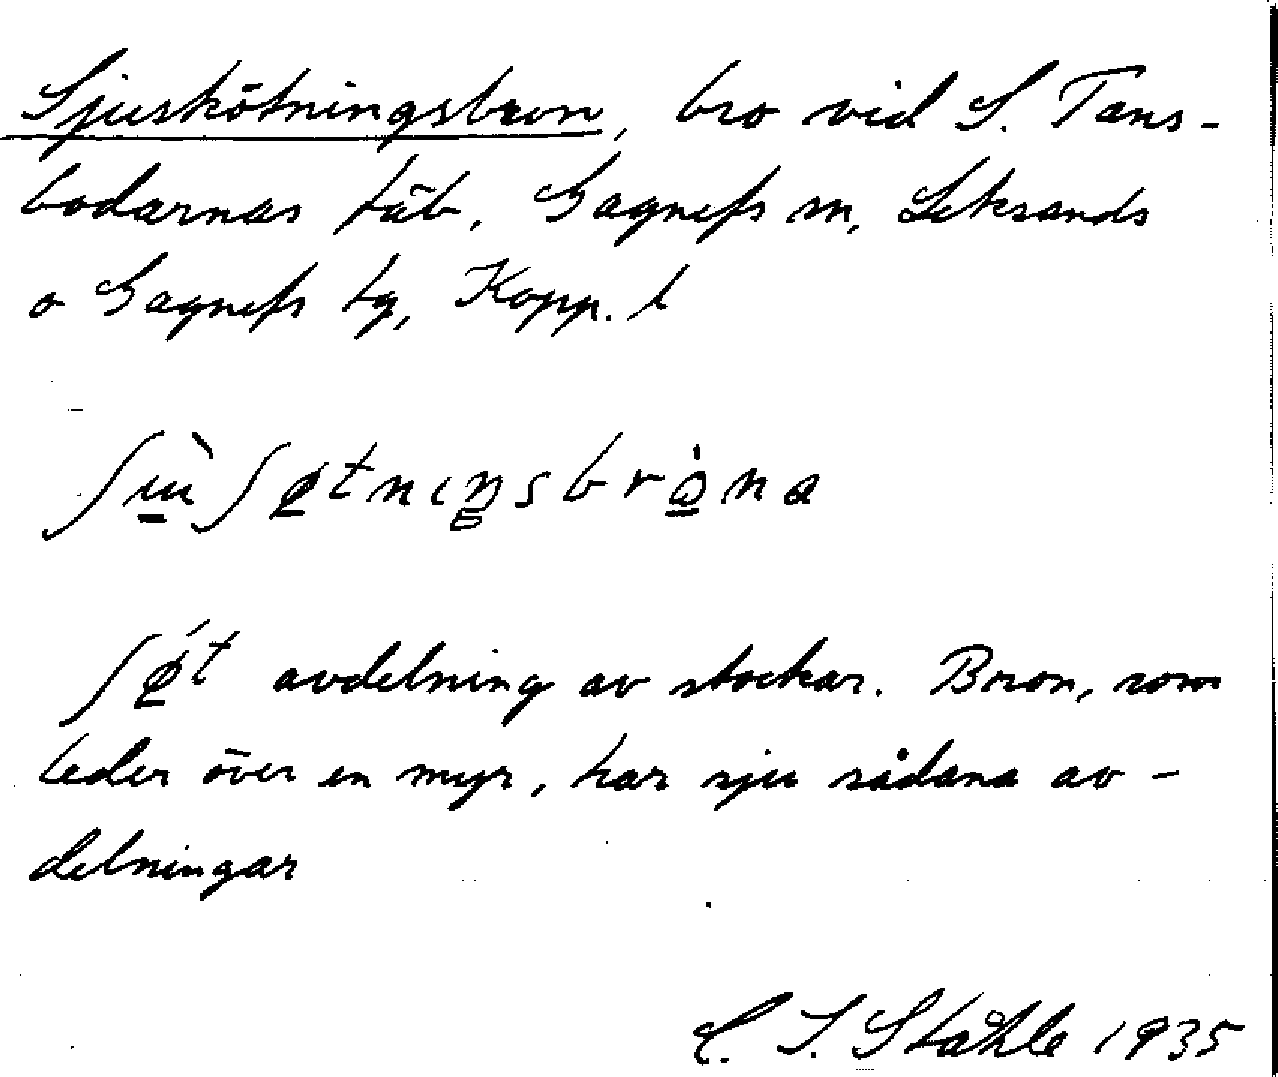 Sjuskötningsbron, bro vid S. Tans-
bodarnas fäb, Gagnefs sn, Leksands
o Gagnefs tg, Kopp. l
avdelning av stockar. Bron, som
leder över en myr, har sju sådana av-
delningar
C. I. Ståhle 1935